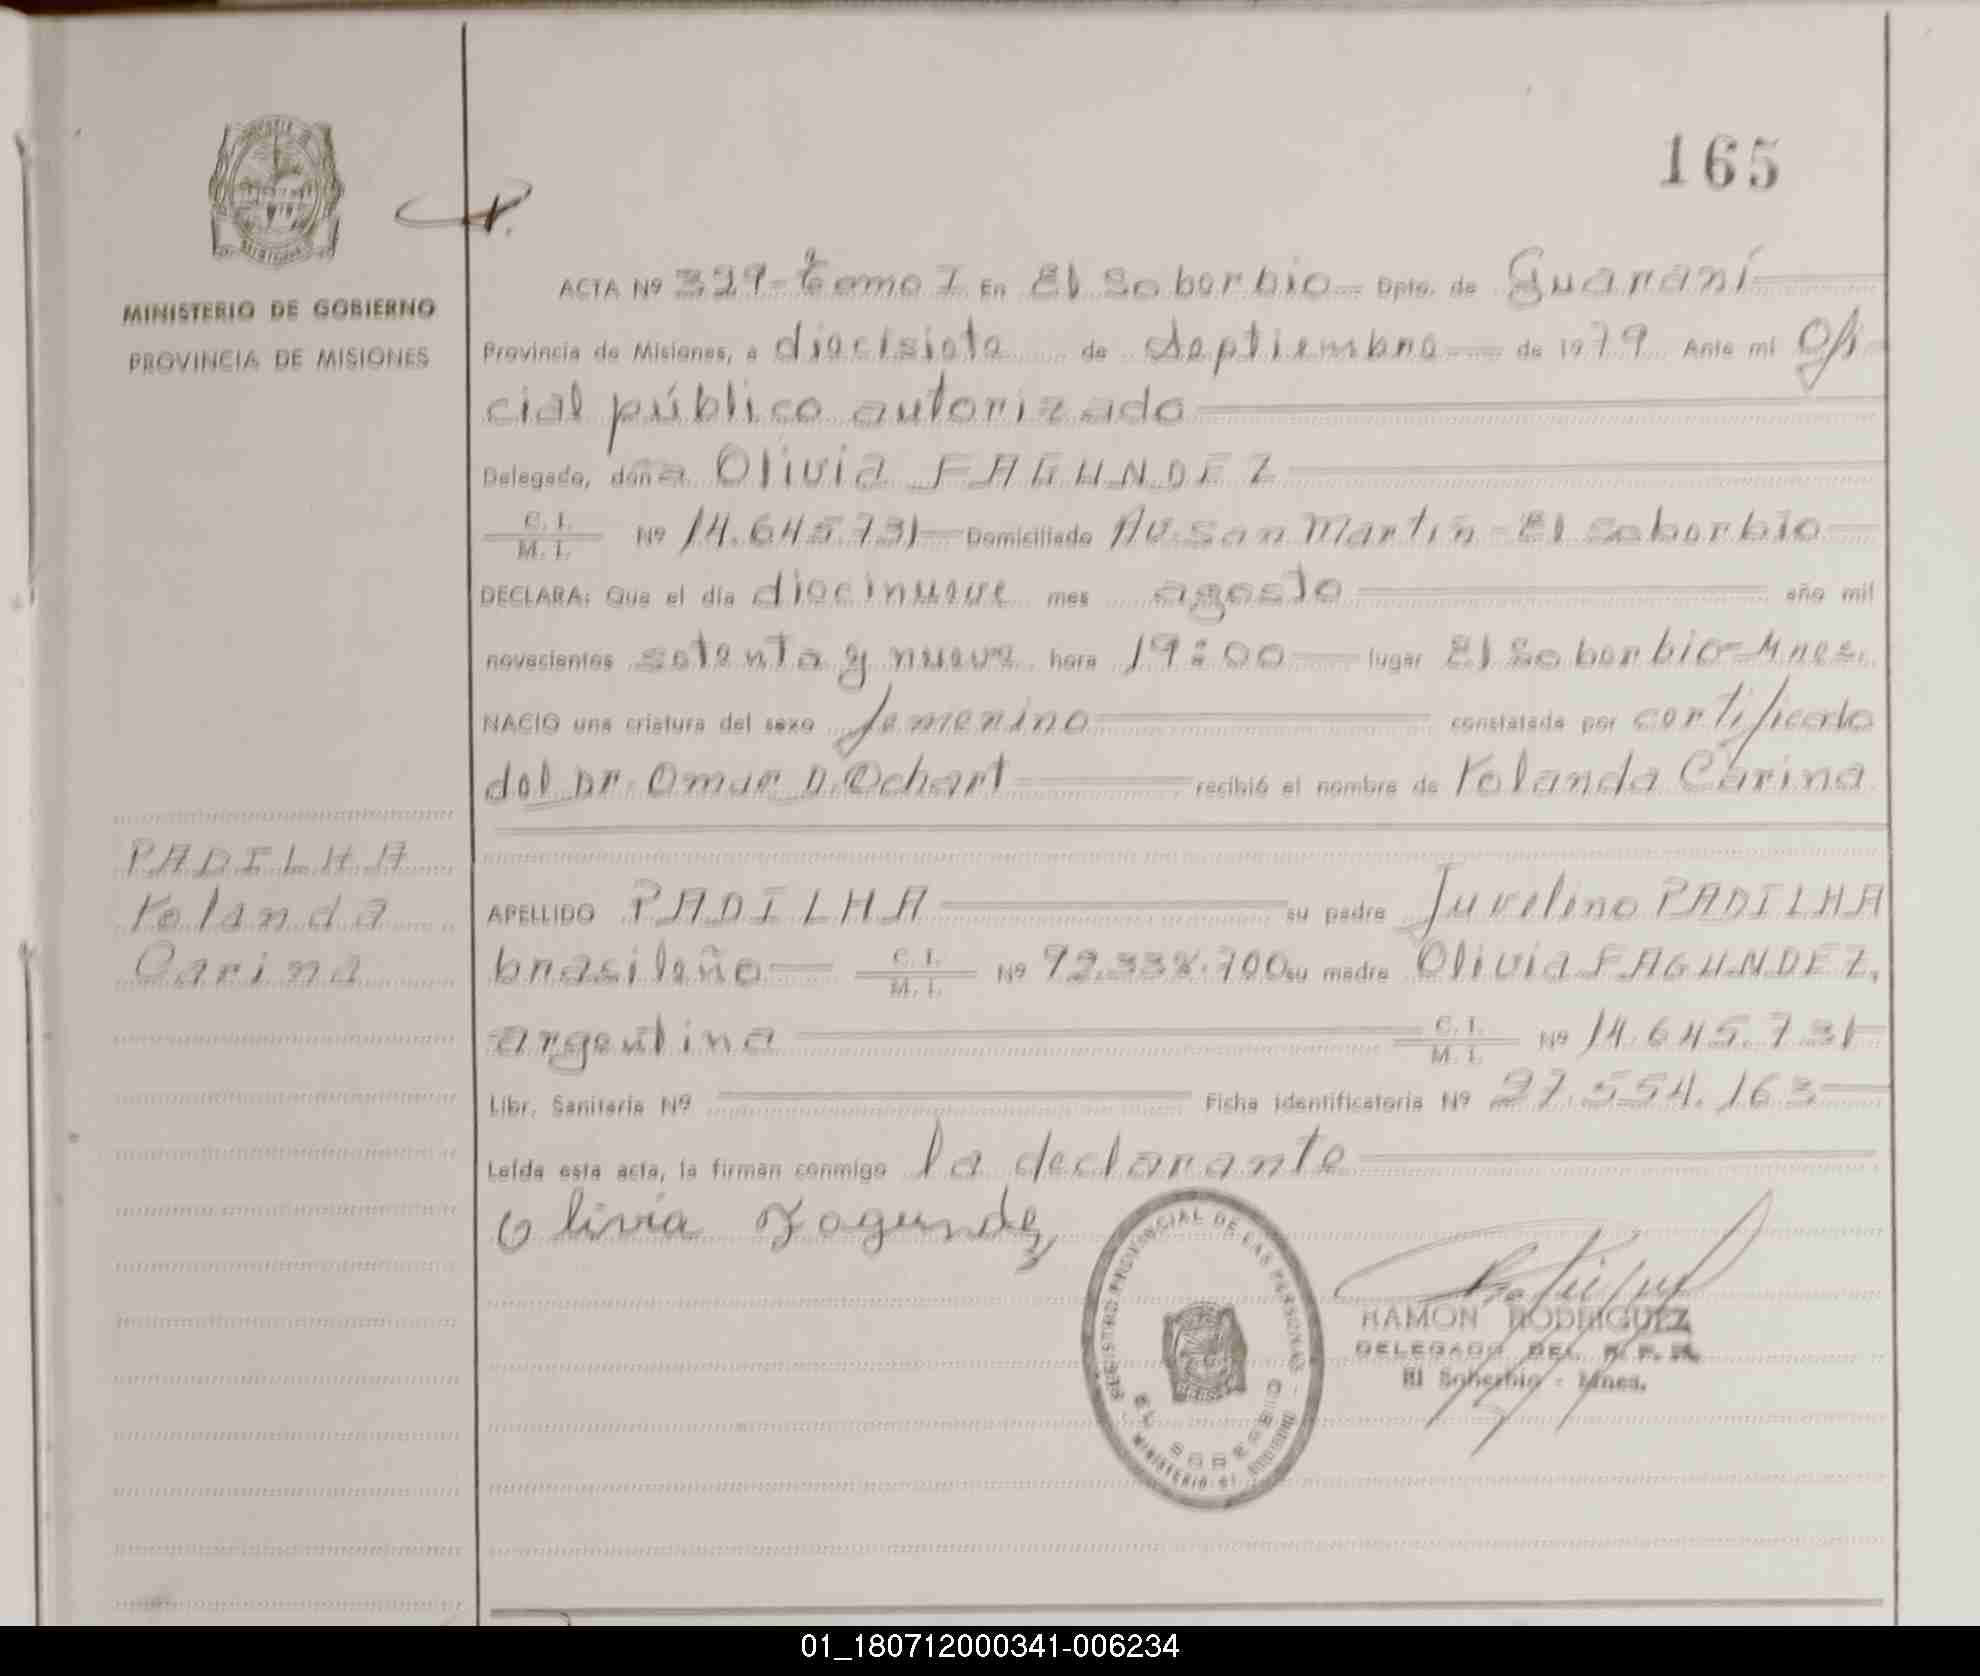 165
MINISTERIO DE GOBIERNO
PROVINCIA DE MISIONES
ACTA Nº 329-tomo I En El Soberbio Dpto. de Guaraní
Provincia de Misiones, a diecisiete de septiembre de 1979 Ante mi Ofi
cial público autorizado
Delegado, doña Olivia FAGUNDEZ
C. I.
M. I. Nº 14.645.731 Domiciliado Av. San Martín - El Soberbio
DECLARA: Que el día diecinueve mes agosto año mil
novecientos setenta y nueve hora 19:00 lugar El Soberbio-Mnes.
NACIO una criatura del sexo femenino constatada por certificado
del Dr. Omar D. Ochart recibió el nombre de Yolanda Carina
PADILHA
Yolanda
Carina
APELLIDO PADILHA su padre Juvelino PADILHA
brasileño C. I.
M. I. Nº 92.338.700 su madre Olivia FAGUNDEZ,
argentina C. I.
M. I. Nº 14.645.731
Libr. Sanitaria Nº Ficha identificatoria Nº 27.554.163
Leída esta acta, la firman conmigo la declarante
Olivia Fagundez
REGISTRO PROVINCIAL DE LAS PERSONAS
EL SOBERBIO
MINISTERIO DE GOBIERNO
RAMON RODRIGUEZ
DELEGADO DEL R. P. P.
El Soberbio - Mnes.
01_180712000341-006234